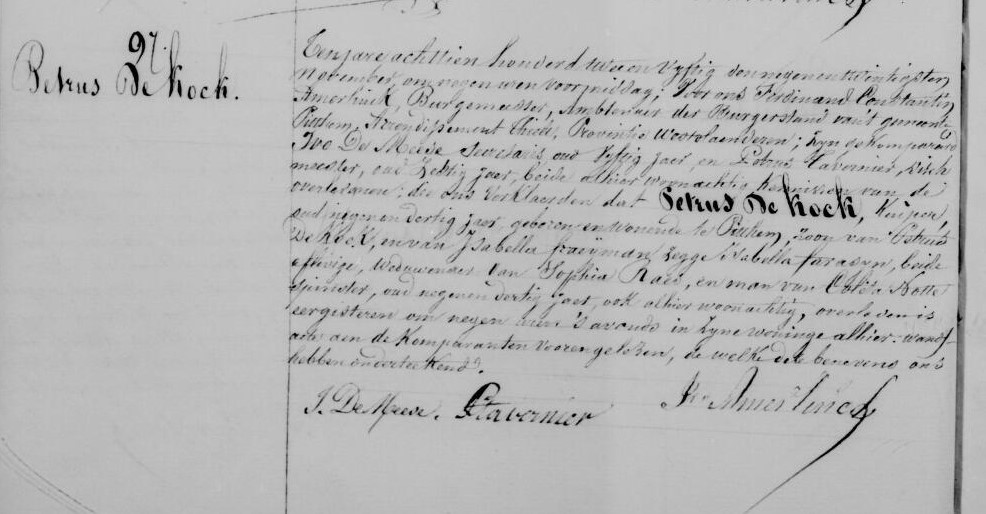 97.
Petrus De Kock.
Ten jare achttien honderd twee en vyftig den negen en twintigsten
November, om negen uren voormiddag; voor ons Ferdinand Constantin
Amerlinck, Burgemeester, Ambtenaer der Burgerstand van't gemeente
Pitthem, Arrondissement Thielt, Provintie Westvlaenderen; zyn gekompareerd
Ivo De Meese secretaris, oud vyftig jaer, en Petrus Tavernier,
meester, oud zestig jaer, beide alhier woonachtig kennissen van de
overledenen; die ons verklaerden dat Petrus De Kock, Kuiper
oud negen en dertig jaer, geboren en wonende te Pitthem, zoon van Petrus
De Kock, en van Isabella fraeyman zegge Isabella farasyn, beide
aflivige, weduwenaer van Sophia Raes, en man van Coleta Notte
spinster, oud negen en dertig jaer, ook alhier woonachtig, overleden is
eergisteren om negen uren 's avonds in zyne woninge alhier: wan
acte aen de Komparanten voorengelezen, de welke deze benevens ons
hebben onderteekend.
J. De Meese. P Tavernier Fd Amerlinck